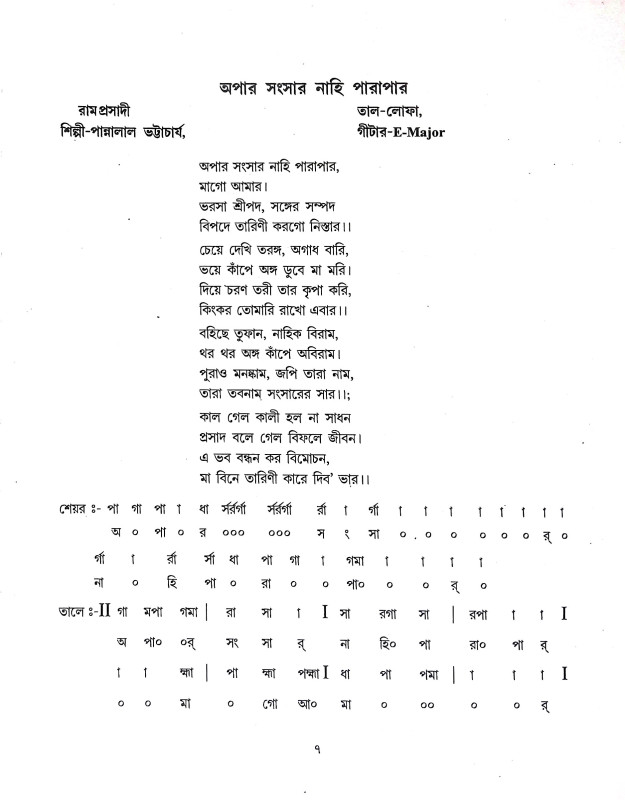 অপার সংসার নাহি পারাপার
রামপ্রসাদী তাল-লোফা,
শিল্পী-পান্নালাল ভট্টাচার্য, গীটার-E-Major
অপার সংসার নাহি পারাপার,
মাগো আমার।
ভরসা শ্রীপদ, সঙ্গের সম্পদ
বিপদে তারিণী করগো নিস্তার।।
চেয়ে দেখি তরঙ্গ, অগাধ বারি,
ভয়ে কাঁপে অঙ্গ ডুবে মা মরি।
দিয়ে চরণ তরী তার কৃপা করি,
কিংকর তোমারি রাখো এবার।।
বহিছে তুফান, নাহিক বিরাম,
থর থর অঙ্গ কাঁপে অবিরাম।
পুরাও মনষ্কাম, জপি তারা নাম,
তারা তবনাম সংসারের সার।।;
কাল গেল কালী হল না সাধন
প্রসাদ বলে গেল বিফলে জীবন।
এ ভব বন্ধন কর বিমোচন,
মা বিনে তারিণী কারে দিব' ভার।।
শেয়র ঃ- পা গা পা া ধা র্সর্রর্গা র্সর্রর্গা র্রা া র্গা া া া া া া া া
অ ০ পা ০ র ০০০ ০০০ স ং সা ০ . ০ ০ ০ ০ ০ র্ ০
র্গা া র্রা র্সা ধা পা গা া গমা া া া া
না ০ হি পা ০ রা ০ ০ পা০ ০ ০ র্ ০
তালে ঃ-II গা মপা গমা | রা সা া I সা রগা সা | রপা া া I
অ পা০ ০র্ সং সা র্ না হি০ পা রা০ পা র্
া া হ্মা | পা হ্মা পহ্মা I ধা পা পমা | া া া I
০ ০ মা ০ গো আ০ মা ০ ০০ ০ ০ র্
৭